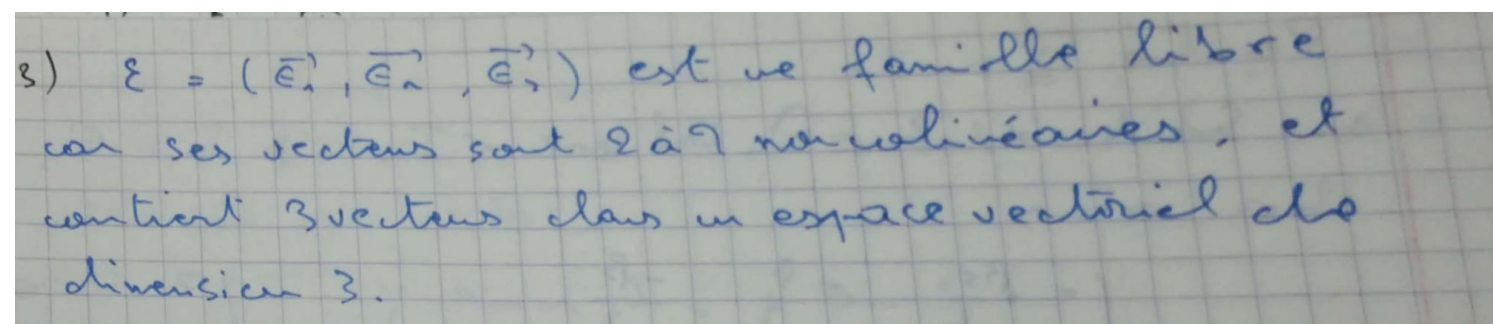 3) ε = (ε₁, ε₂, ε₃) est une famille libre
car ses vecteurs sont 2 à 2 non colinéaires, et
contient 3 vecteurs dans un espace vectoriel de
dimension 3.